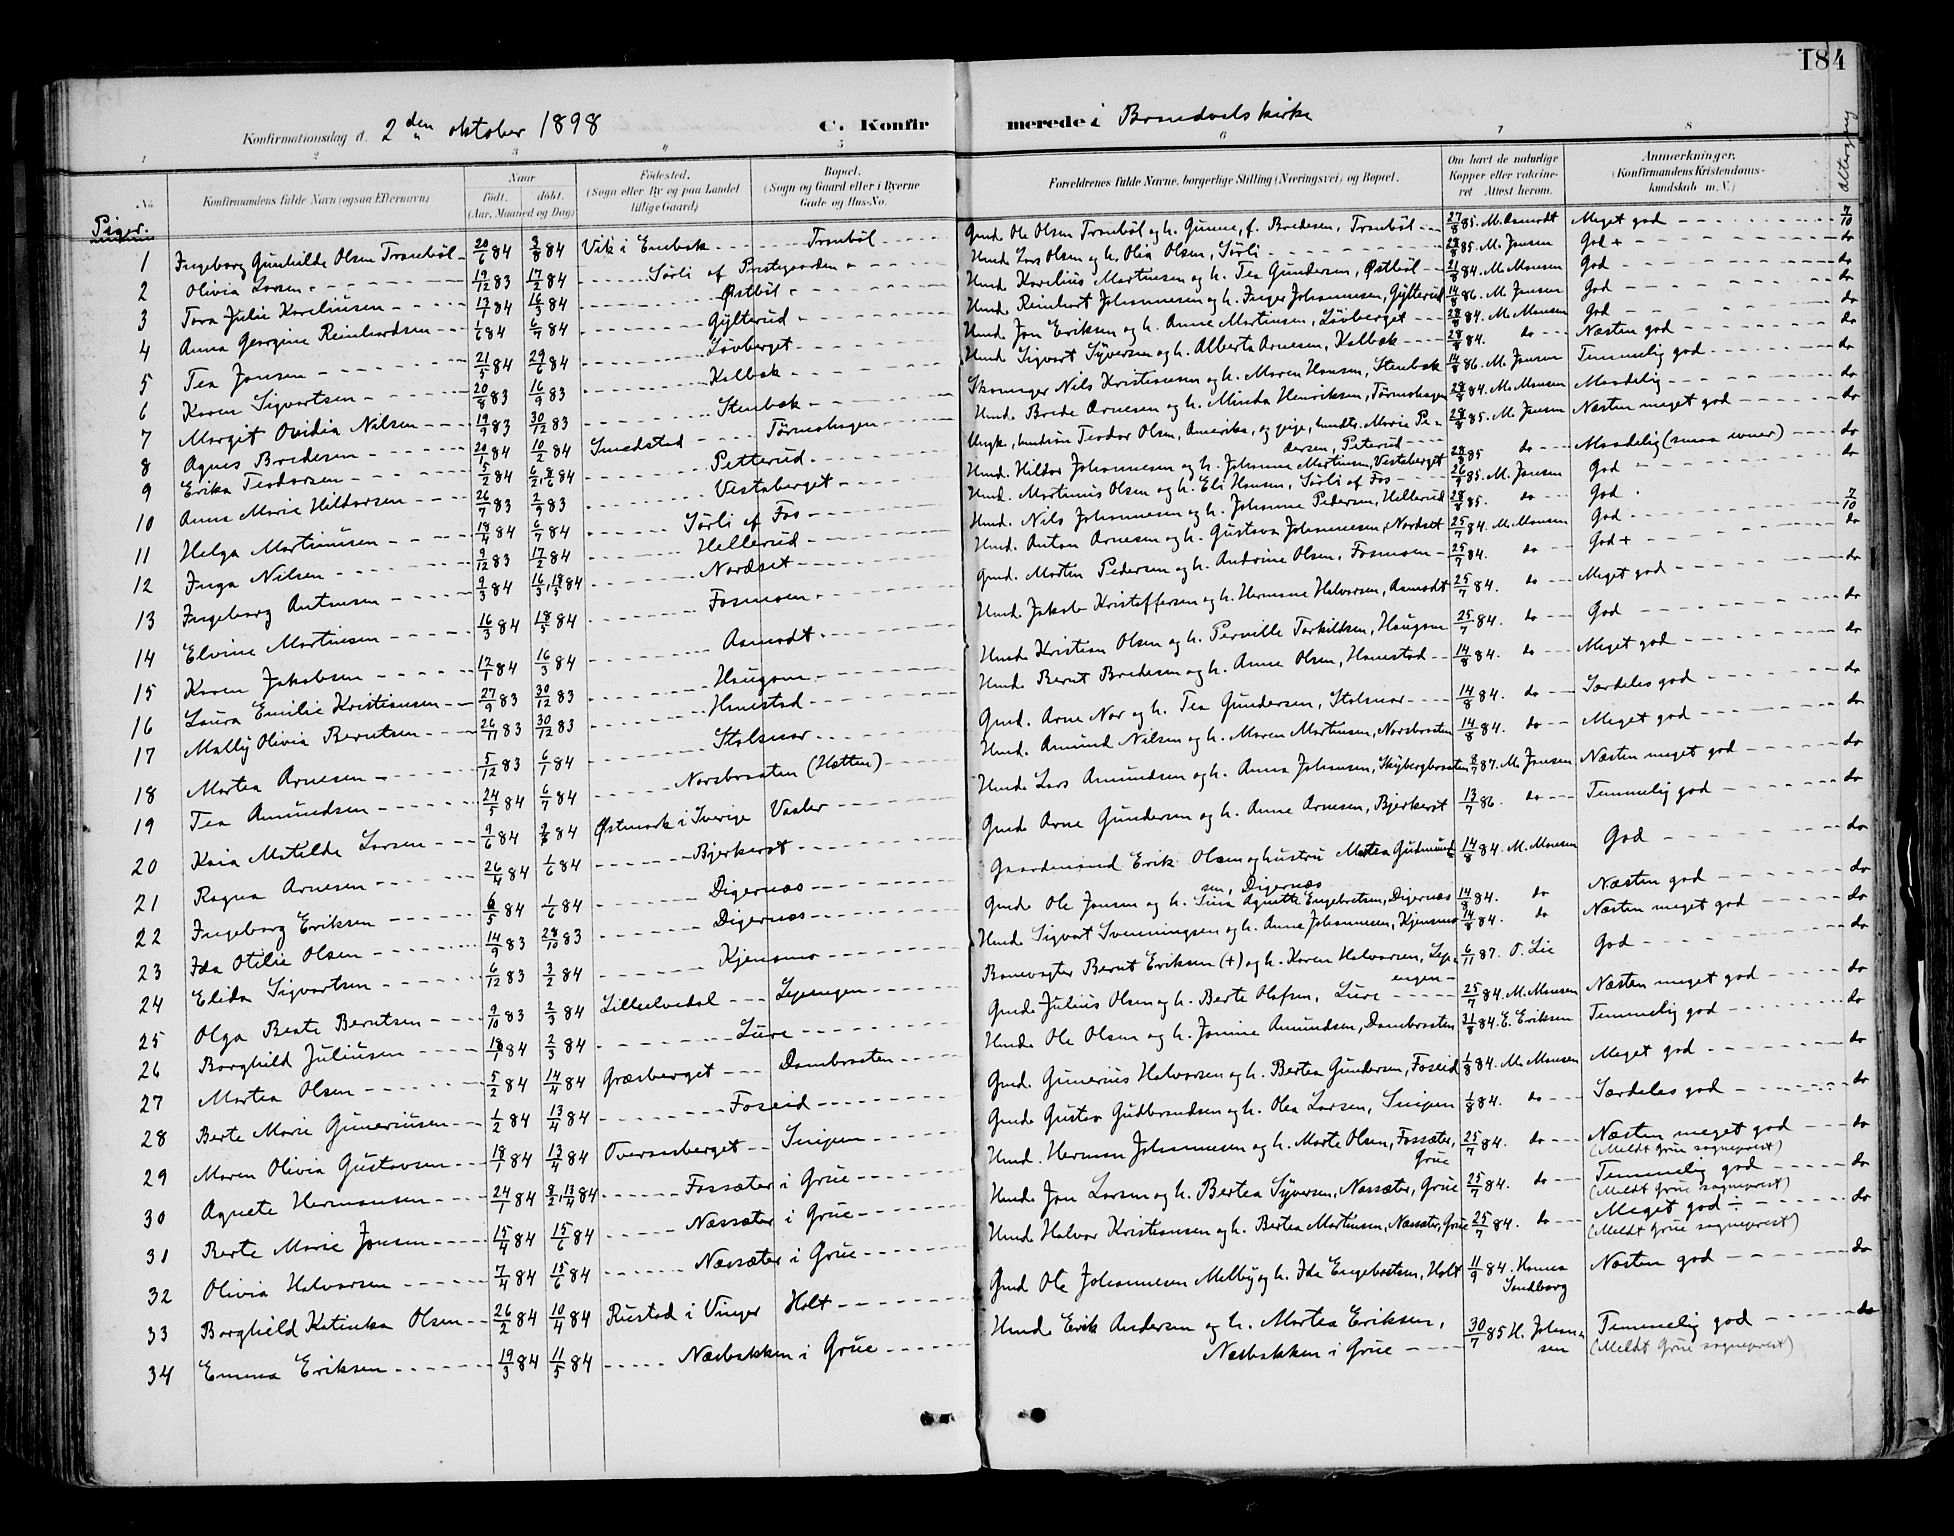 184
Konfirmationsdag d. 2den oktober 1898
C. Konfirmerede i Brandvals kirke
1 2 3 4 5 6 7 8
No
Konfirmandens fulde Navn (ogsaa Efternavn)
Naar født. døbt. (Aar, Maaned og Dag)
Fødested. (Sogn eller By og paa Landet tillige Gaard)
Bopæl. (Sogn og Gaard eller i Byerne Gade og Hus-No.
Forældrenes fulde Navne, borgerlige Stilling (Næringsvei) og Bopæl.
Om havt de naturlige Kopper eller vakcineret Attest herom.
Anmærkninger. (Konfirmandens Kristendomskundskab m. V.)
Altergang
Piger.
1 Ingeborg Gunhilde Olsen Tronbøl 20/6 84 3/8 84 Vik i Enebak Tronbøl Gmd. Ole Olsen Tronbøl og h. Gunne, f. Bredesen, Tronbøl 27/8 85. M. Asmodt Meget god 7/10
2 Olivia Larsen 19/12 83 17/2 84 Sørli af Prestegaarden Hmd. Lars Olsen og h. Olia Olsen, Sørli 28/8 85. M. Jensen God + do
3 Tora Julie Kareliusen 17/1 84 16/3 84 Østbøl Hmd. Karelius Martinsen og h. Tea Gundersen, Østbøl 21/8 84. M. Monsen God do
4 Anna Georgine Reinhardsen 1/6 84 6/7 84 Gylterud Hmd. Reinhart Johannesen og h. Inger Johannesen, Gylterud 14/8 86. M. Jensen God do
5 Tea Jonsen 21/5 84 29/6 84 Løvberget Hmd. Jon Eriksen og h. Anne Martinsen, Løvberget 28/8 84. M. Monsen God do
6 Karen Sigvartsen 20/8 83 16/9 83 Kalbak Hmd. Sigvart Syversen og h. Alberta Arnesen, Kalbak 28/8 84. do Næsten god do
7 Margit Ovidia Nilsen 19/9 83 30/12 83 Stenbak Skomager Nils Kristiansen og h. Maren Hansen, Stenbak 14/8 86. M. Jensen Temmelig god do
8 Agnes Bredesen 20/1 84 10/2 84 Smedstad Tørmohagen Hmd. Brede Arnesen og h. Minda Henriksen, Tørmohagen 28/8 84. M. Monsen Maadelig do
9 Erika Teodorsen 5/2 84 6/2, 8/6 84 Petterud Ungk., husbsøn Teodor Olsen, Amerika, og pige, husdtr. Marie Pedersen, Peterud 28/8 85. M. Jensen Næsten meget god do
10 Anna Marie Hildorsen 26/7 83 2/9 83 Vestaberget Hmd. Hildor Johannesen og h. Johanne Martinsen, Vestaberget 28/8 85 do Maadelig (smaa evner) do
11 Helga Martinusen 18/4 84 6/7 84 Sørli af Fos Hmd. Martinus Olsen og h. Eli Hansen, Sørli af Fos 26/9 85. M. Jensen God do
12 Inga Nilsen 9/12 83 17/2 84 Hellerud Hmd. Nils Johannesen og h. Johanne Pedersen, Hellerud 28/8 85. do God
13 Ingeborg Antonsen 9/3 84 16/3, 18/5 84 Nordset Hmd. Anton Arnesen og h. Gustava Johannesen, Nordset 25/7 84. M. Monsen God 7/10
14 Elvine Martinsen 16/3 84 18/5 84 Fosmoen Gmd. Martin Pedersen og h. Andrine Olsen, Fosmoen 25/7 84. do God + do
15 Karen Jakobsen 17/1 84 16/3 84 Asmodt Hmd. Jakob Kristoffersen og h. Hermane Halvorsen, Asmodt 25/7 84. do Meget god do
16 Laura Emilie Kristiansen 27/9 83 30/12 83 Haugom Hmd. Kristian Olsen og h. Pernille Tarkildsen, Haugom 25/7 84. do God do
17 Mally Olivia Berntsen 26/11 83 30/12 83 Honestad Hmd. Bernt Bredesen og h. Anne Olsen, Honestad 14/8 84. do Meget god do
18 Martea Arnesen 5/12 83 6/1 84 Stolsnor Gmd. Arne Nor og h. Tea Gundersen, Stolsnor 14/8 84. do Særdeles god do
19 Tea Amundsen 24/5 84 6/7 84 Norsbraaten (Hatten) Hmd. Amund Nilsen og h. Maren Martinsen, Norsbraaten 14/8 84. do Meget god do
20 Kaia Matilde Larsen 9/6 84 3/8 84 Østmark i Sverige Vasler Hmd. Lars Amundsen og h. Anna Johansen, Skybergbraaten 8/7 87. M. Jensen Næsten meget god do
21 Ragna Arnesen 26/4 84 1/6 84 Bjerkerot Gmd. Arne Gundersen og h. Anne Arnesen, Bjerkerot 13/7 86. do Temmelig god do
22 Ingeborg Eriksen 6/5 84 1/6 84 Digernæs Gaardmand Erik Olsen og hustru Martea Gudmundsen, Digernæs 14/8 84. M. Monsen God do
23 Ida Otilie Olsen 14/9 83 28/10 83 Digernæs Gmd. Ole Jonsen og h. Lina Agnette Engebretsen, Digernæs 14/8 84. do Næsten god do
24 Elida Sigvartsen 6/12 83 3/2 84 Kjensmo Hmd. Sigvart Svenningsen og h. Anne Johannesen, Kjensmo 14/8 84. do Næsten meget god do
25 Olga Beate Berntsen 9/10 83 2/3 84 Lilleelvedal Lejrengen Banevogter Bernt Eriksen (+) og h. Karen Halvorsen, Lejrengen 6/11 87. O. Lie God do
26 Borghild Juliusen 18/1 84 2/3 84 Lure Gmd. Julius Olsen og h. Berte Olafsen, Lure 25/7 84. M. Monsen Næsten meget god do
27 Martea Olsen 5/2 84 14/4 84 Græsberget Dambraaten Hmd. Ole Olsen og h. Jonine Amundsen, Dambraaten 31/8 84. E. Eriksen Temmelig god do
28 Berte Marie Gunerinsen 1/2 84 13/4 84 Foseid Gmd. Gunerius Halvorsen og h. Bertea Gundersen, Foseid 1/8 84. M. Monsen Meget god do
29 Maren Olivia Gustavsen 18/1 84 13/4 84 Oversosberget Snipen Gmd. Gustav Gudbrandsen og h. Olea Larsen, Snipen 1/8 84. do Særdeles god do
30 Agnete Hermansen 24/1 84 8/2, 13/4 84 Fossæter i Grue Hmd. Herman Johannesen og h. Marte Olsen, Fossæter, Grue 25/7 84. do Næsten meget god (Meldt Grue sogneprest) do
31 Berte Marie Jonsen 15/4 84 15/6 84 Næssæter i Grue Hmd. Jon Larsen og h. Bertea Syversen, Næssæter, Grue 25/7 84. do Temmelig god (Meldt Grue sogneprest) do
32 Olivia Halvorsen 7/4 84 15/6 84 Næssæter i Grue Hmd. Halvor Kristiansen og h. Bertea Martinsen, Næssæter, Grue 25/7 84. do Meget god ÷ (Meldt Grue sogneprest) do
33 Borghild Katinka Olsen 26/2 84 10/4 84 Rustad i Vinger Holt Gmd. Ole Johannesen Melby og h. Ida Engebretsen, Holt 11/9 84. Hanna Sandborg Næsten god do
34 Emma Eriksen 19/3 84 11/5 84 Næsbakken i Grue Hmd. Erik Andersen og h. Martea Eriksen, Næsbakken i Grue 30/7 85 H. Johansen Temmelig god (Meldt Grue sogneprest) do